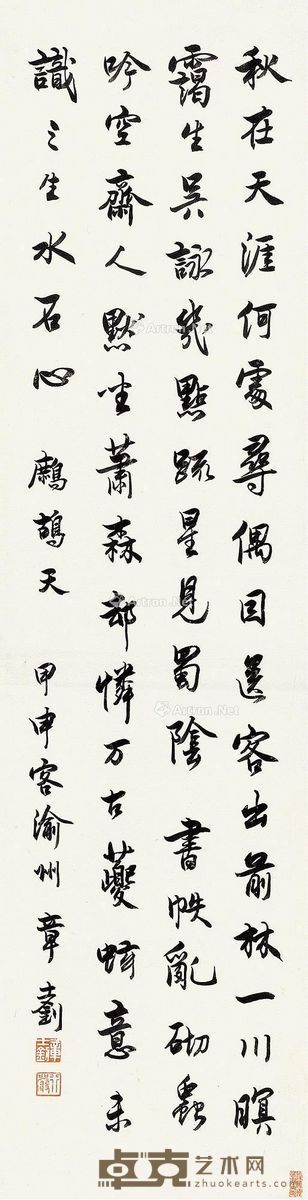 秋在天涯何處尋偶因送客出前林一川暝
靄生吳詠幾點疏星見蜀陰 書帙亂砌蟲
吟空齋人默坐蕭森却憐万古夔蚿意未
識三生水石心 鷓鴣天 甲申客渝州 章士釗
Artron.Net
卓克艺术网
zhuokearts.com